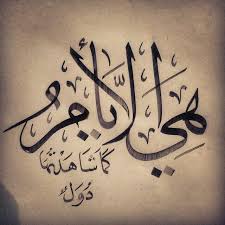 هي الأيام
كما شاهدتها
دول